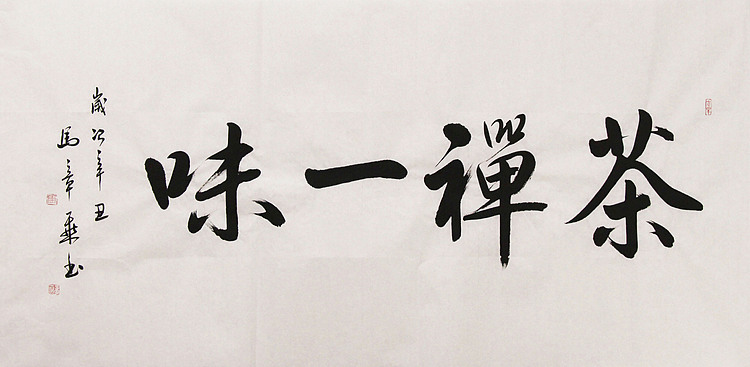 茶禪一味
歲次辛丑
馬章乘書